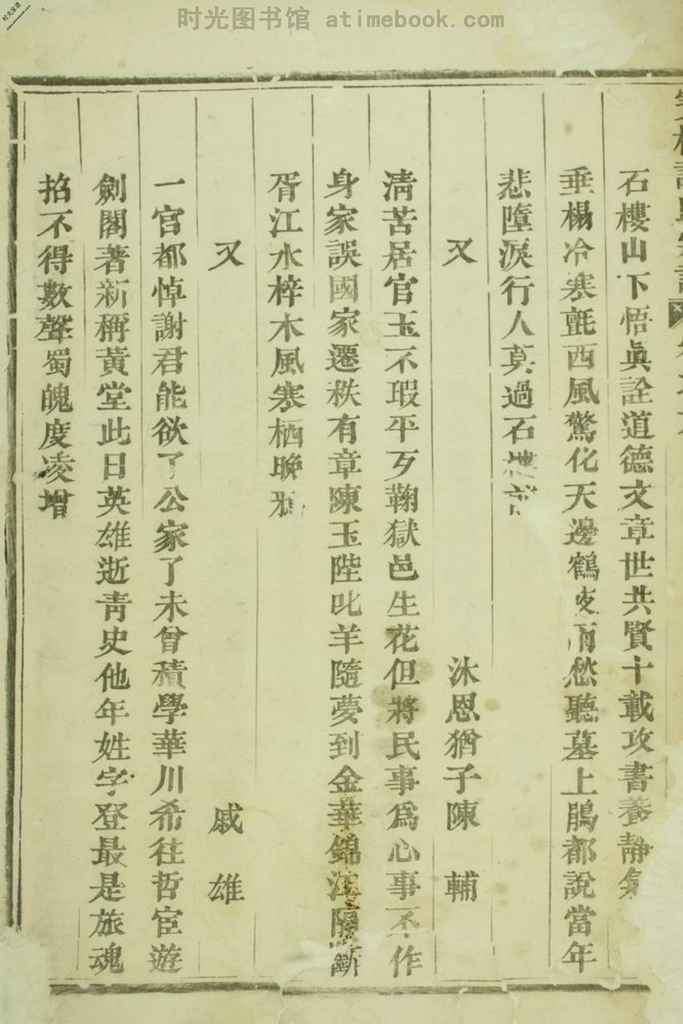 时光图书馆 atimebook.com
石樓山下悟眞詮道德文章世共賢十載攻書養靜氣
垂楊冷寒氈西風驚化天邊鶴夜雨愁聽墓上鵑都說當年
悲墮淚行人莫過石樓前
又 沐恩猶子陳輔
淸苦居官玉不瑕平歹鞠獄邑生花但將民事爲心事不作
身家誤國家遷秩有章陳玉陛叱羊隨夢到金華錦江隔斷
胥江水梓木風寒栖晚鴉
又 戚雄
一官都悼謝君能欲了公家了未曾積學華川希往哲宦遊
劍閣著新稱黃堂此日英雄逝靑史他年姓字登最是旅魂
招不得數聲蜀魄度凌增